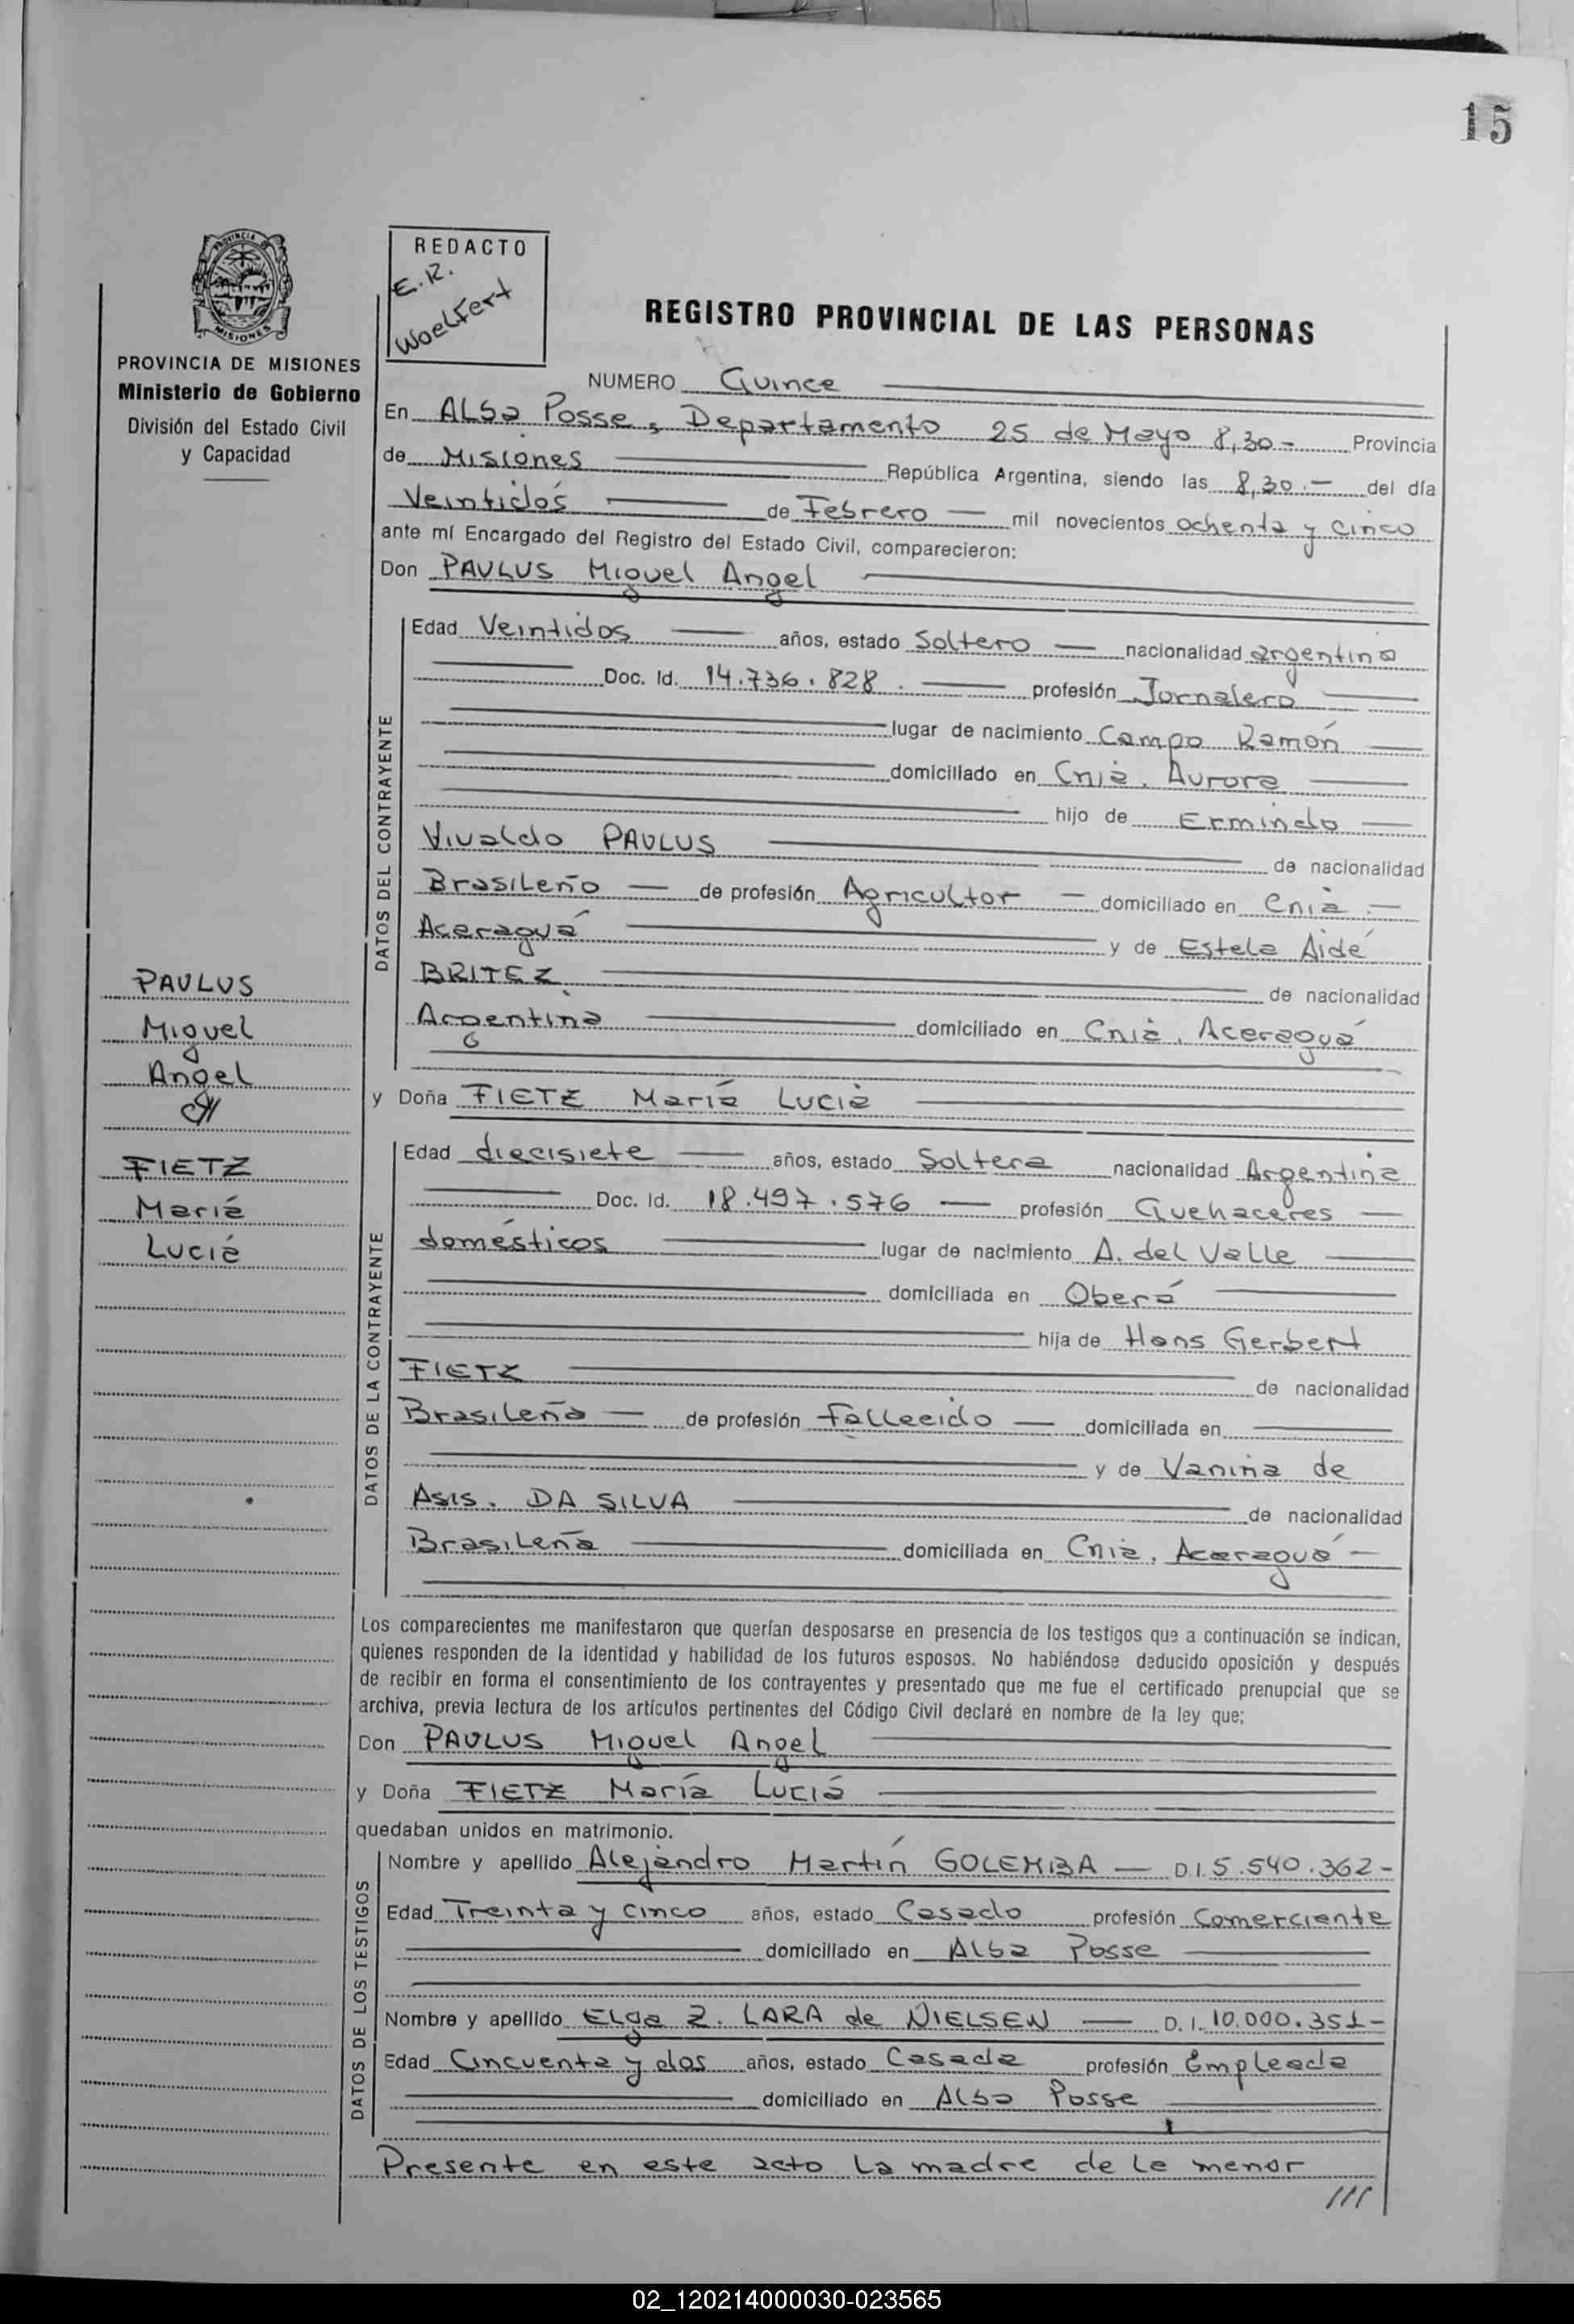 15
PROVINCIA DE
MISIONES
PROVINCIA DE MISIONES
Ministerio de Gobierno
División del Estado Civil
y Capacidad
REDACTO
E.R.
Woelfert
REGISTRO PROVINCIAL DE LAS PERSONAS
NUMERO Quince
En Alba Posse, Departamento 25 de Mayo 8,30 - Provincia
de Misiones República Argentina, siendo las 8,30.- del día
Veintidós de Febrero mil novecientos ochenta y cinco
ante mí Encargado del Registro del Estado Civil, comparecieron:
Don PAULUS Miguel Angel
DATOS DEL CONTRAYENTE
Edad Veintidos años, estado Soltero nacionalidad argentina
Doc. Id. 14.736.828. profesión Jornalero
lugar de nacimiento Campo Ramón
domiciliado en Cnia. Aurora
hijo de Ermindo
Vivaldo PAULUS de nacionalidad
Brasileño de profesión Agricultor domiciliado en Cnia.
Aceraguá y de Estela Aidé
BRITEZ de nacionalidad
Argentina domiciliado en Cnia. Aceraguá
y Doña FIETZ María Lucia
DATOS DE LA CONTRAYENTE
Edad diecisiete años, estado Soltera nacionalidad Argentina
Doc. Id. 18.497.576 profesión Quehaceres
domésticos lugar de nacimiento A. del Valle
domiciliada en Oberá
hija de Hans Gerbert
FIETZ de nacionalidad
Brasileña de profesión fallecido domiciliada en
y de Vanina de
Asis. DA SILVA de nacionalidad
Brasileña domiciliada en Cnia. Aceraguá
Los comparecientes me manifestaron que querían desposarse en presencia de los testigos que a continuación se indican,
quienes responden de la identidad y habilidad de los futuros esposos. No habiéndose deducido oposición y después
de recibir en forma el consentimiento de los contrayentes y presentado que me fue el certificado prenupcial que se
archiva, previa lectura de los artículos pertinentes del Código Civil declaré en nombre de la ley que;
Don PAULUS Miguel Angel
y Doña FIETZ María Lucia
quedaban unidos en matrimonio.
DATOS DE LOS TESTIGOS
Nombre y apellido Alejandro Martín GOLEMBA D.I. 5.540.362-
Edad Treinta y cinco años, estado Casado profesión Comerciante
domiciliado en Alba Posse
Nombre y apellido Elga Z. LARA de NIELSEN D.I. 10.000.351-
Edad Cincuenta y dos años, estado Casada profesión Empleada
domiciliado en Alba Posse
Presente en este acto la madre de la menor
///
PAULUS
Miguel
Angel
FIETZ
Maria
Lucia
02_120214000030-023565